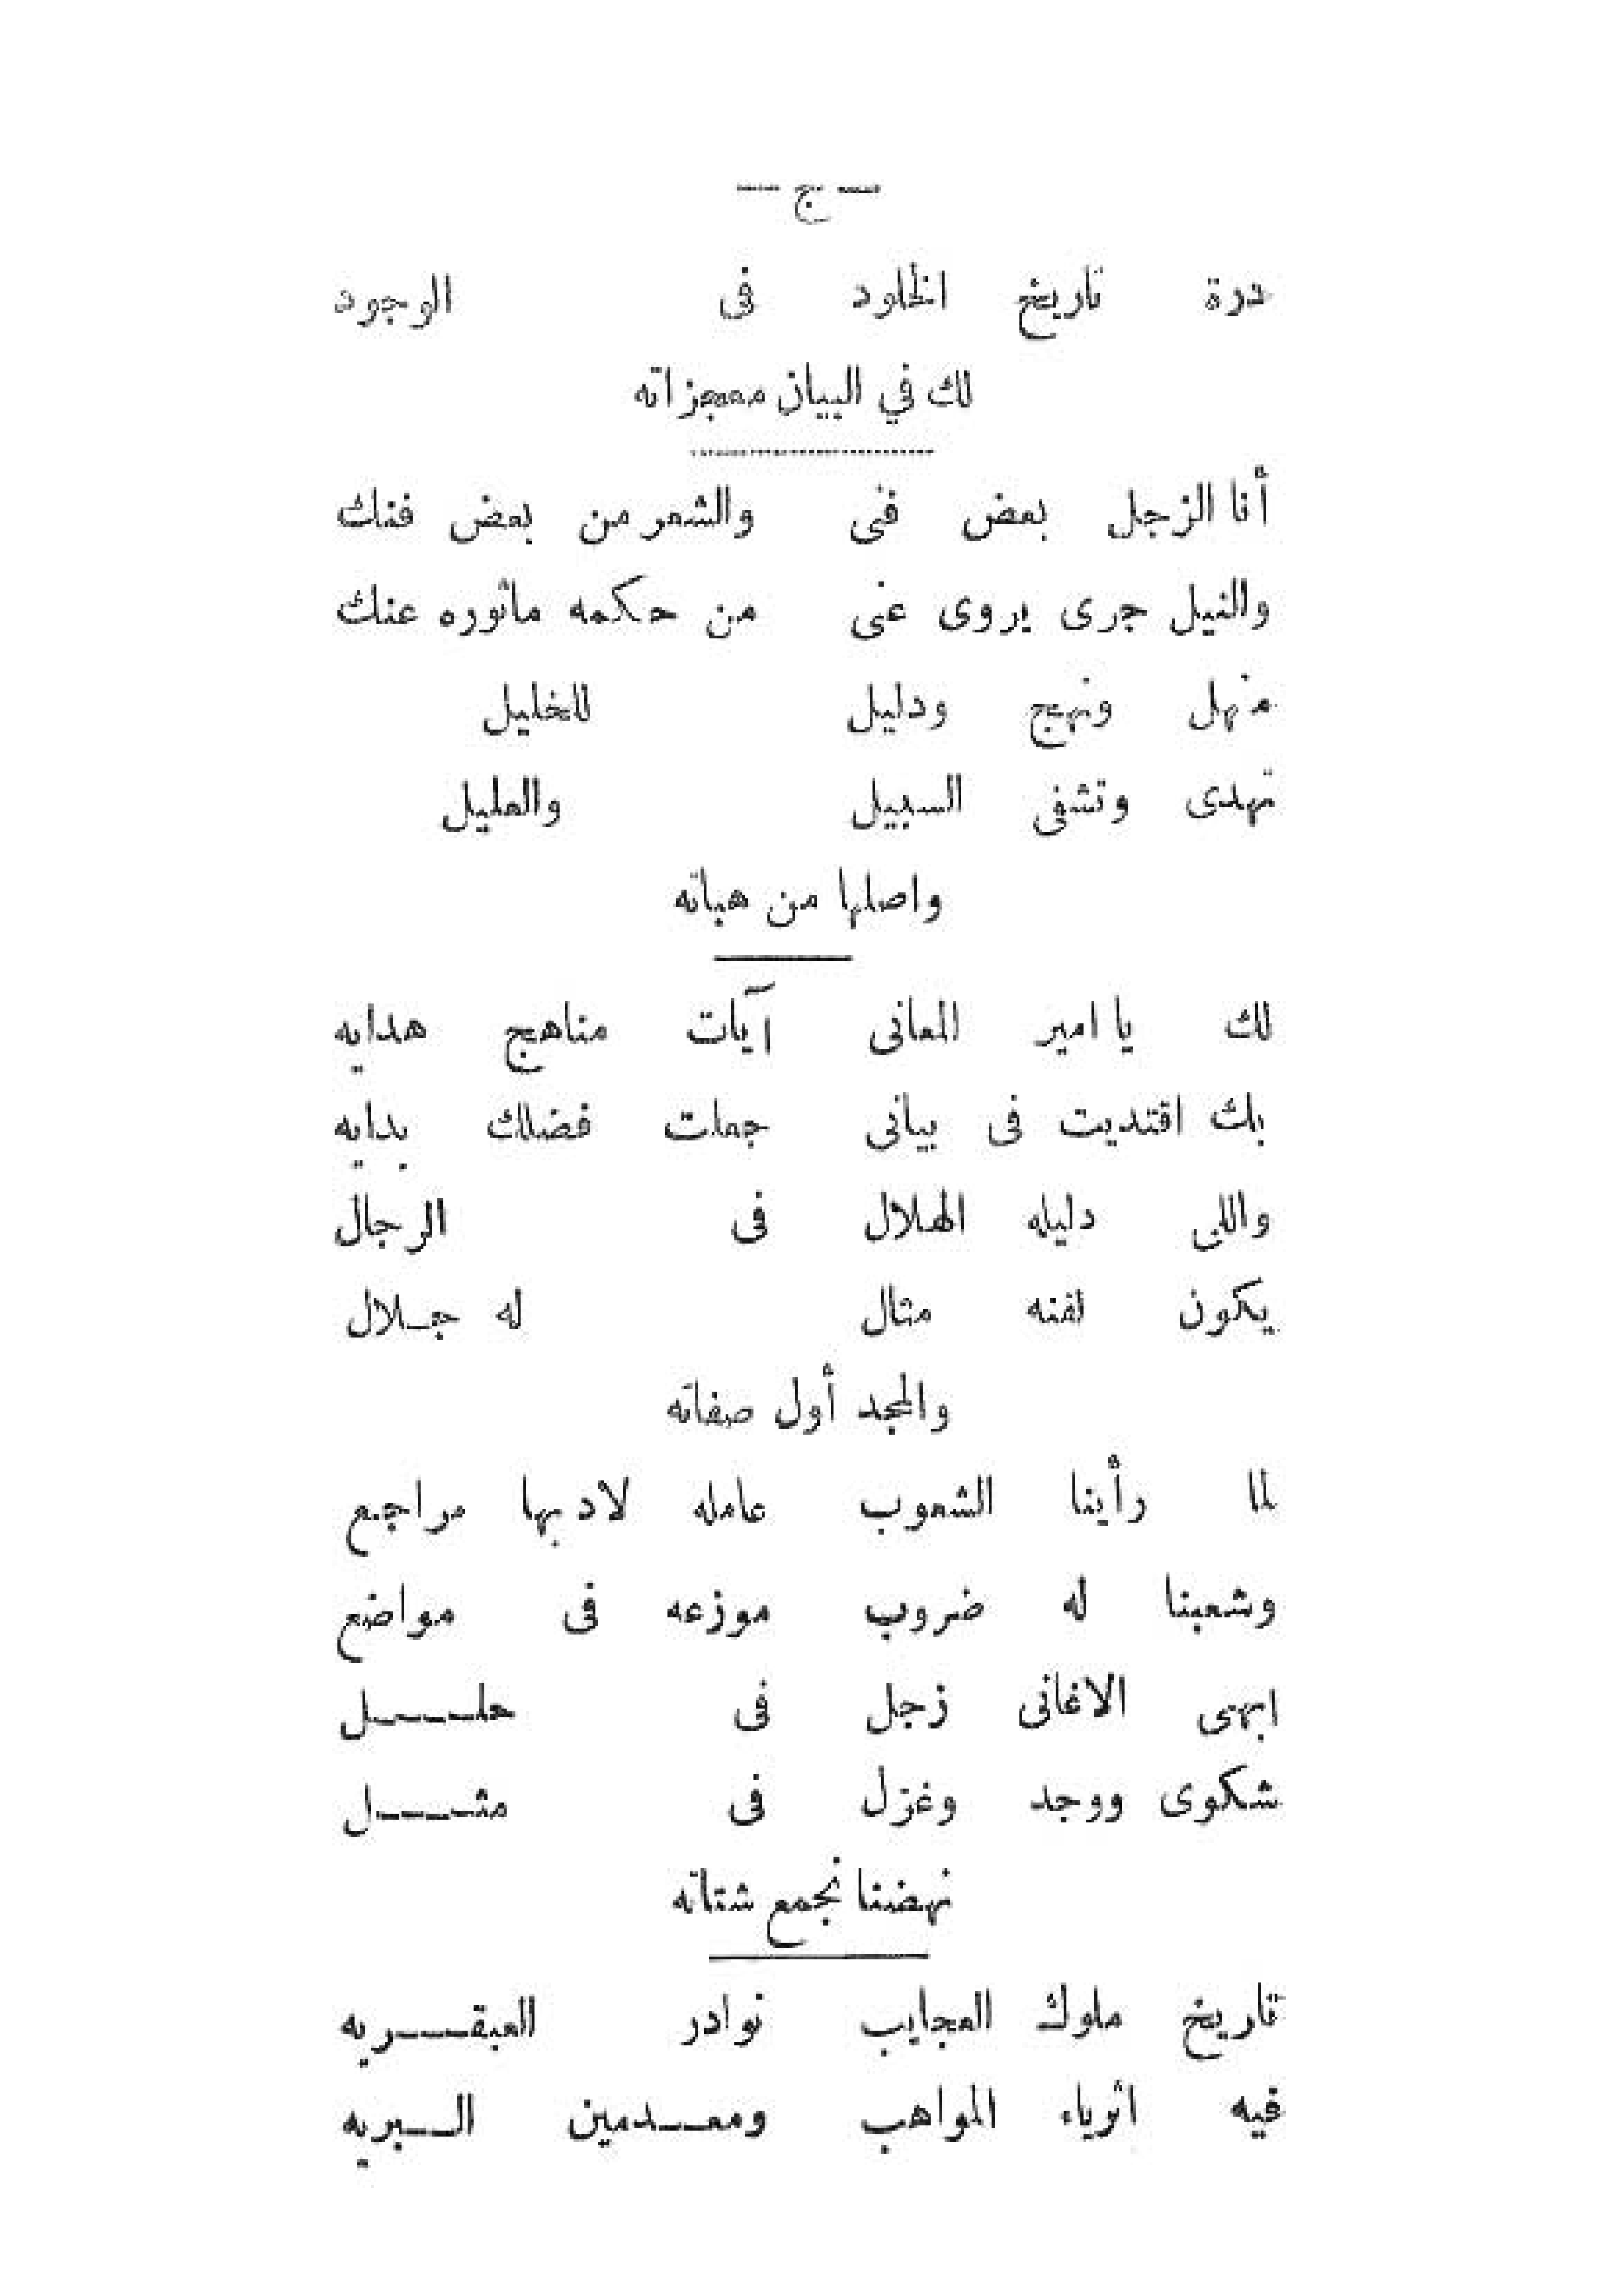 — ج —
درة تاريخ الخلود فى الوجود
لك في البيان معجزاته
أنا الزجل بعض فنى والشعر من بعض فنك
والنيل جرى يروى عنى من حكمه مأثوره عنك
منهل ونهج ودليل للخليل
تهدى وتشفى السبيل والعليل
واصلها من هباته
لك يا امير المعانى آيات مناهج هدايه
بك اقتديت فى بيانى جملت فضلك بدايه
واللى دليله الهلال فى الرجال
يكون لفنه مثال له جلال
والمجد أول صفاته
لما رأينا الشعوب عامله لادبها مراجع
وشعبنا له ضروب موزعه فى مواضع
ابهى الاغانى زجل فى حلـــل
شكوى ووجد وغزل فى مثـــل
نهضنا نجمع شتاته
تاريخ ملوك العجايب نوادر العبقـــريه
فيه اثرياء المواهب ومعـــدمين الـــبريه